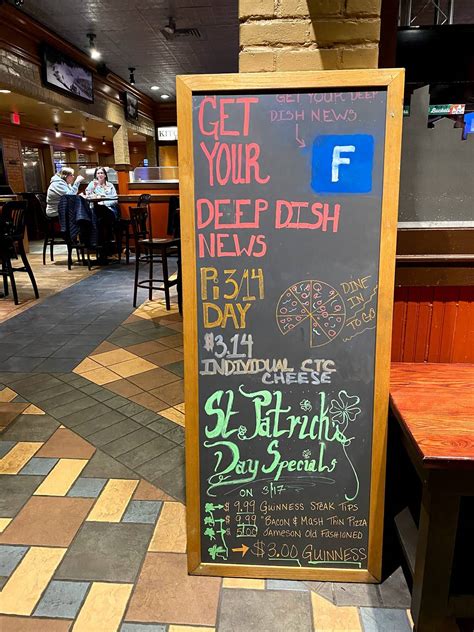 GET YOUR DEEP
DISH NEWS
GET
YOUR
F
DEEP DISH
NEWS
Pi 3/14
DAY
DINE
IN
TO GO
$3.14
INDIVIDUAL CTC
CHEESE
St. Patrick's
Day Specials
on 3/17
$ 9.99 GUINNESS STEAK TIPS
$ 9.99 "BACON & MASH THIN PIZZA
5.00 JAMESON OLD FASHIONED
$3.00 GUINNESS